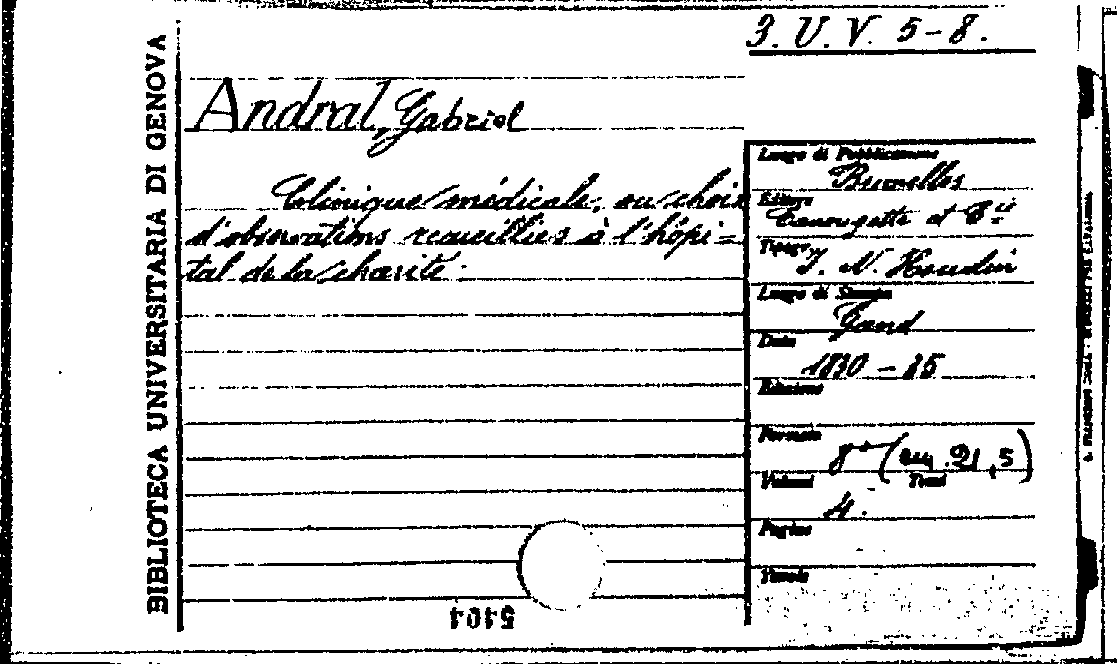 3. U. V. 5-8.
BIBLIOTECA UNIVERSITARIA DI GENOVA
Andral, Gabriel
Clinique médicale, ou choix
d'observations recueillies à l'hôpi=
tal de la charité.
Luogo di Pubblicazione
Bruxelles
Editore
et Cie
Tipogr.
J. N. Houdin
Luogo di Stampa
Gand
Data
1830 - 35
Edizione
Formato
8° (cm. 21,5)
Volumi Tomi
4.
Pagine
Tavole
5404